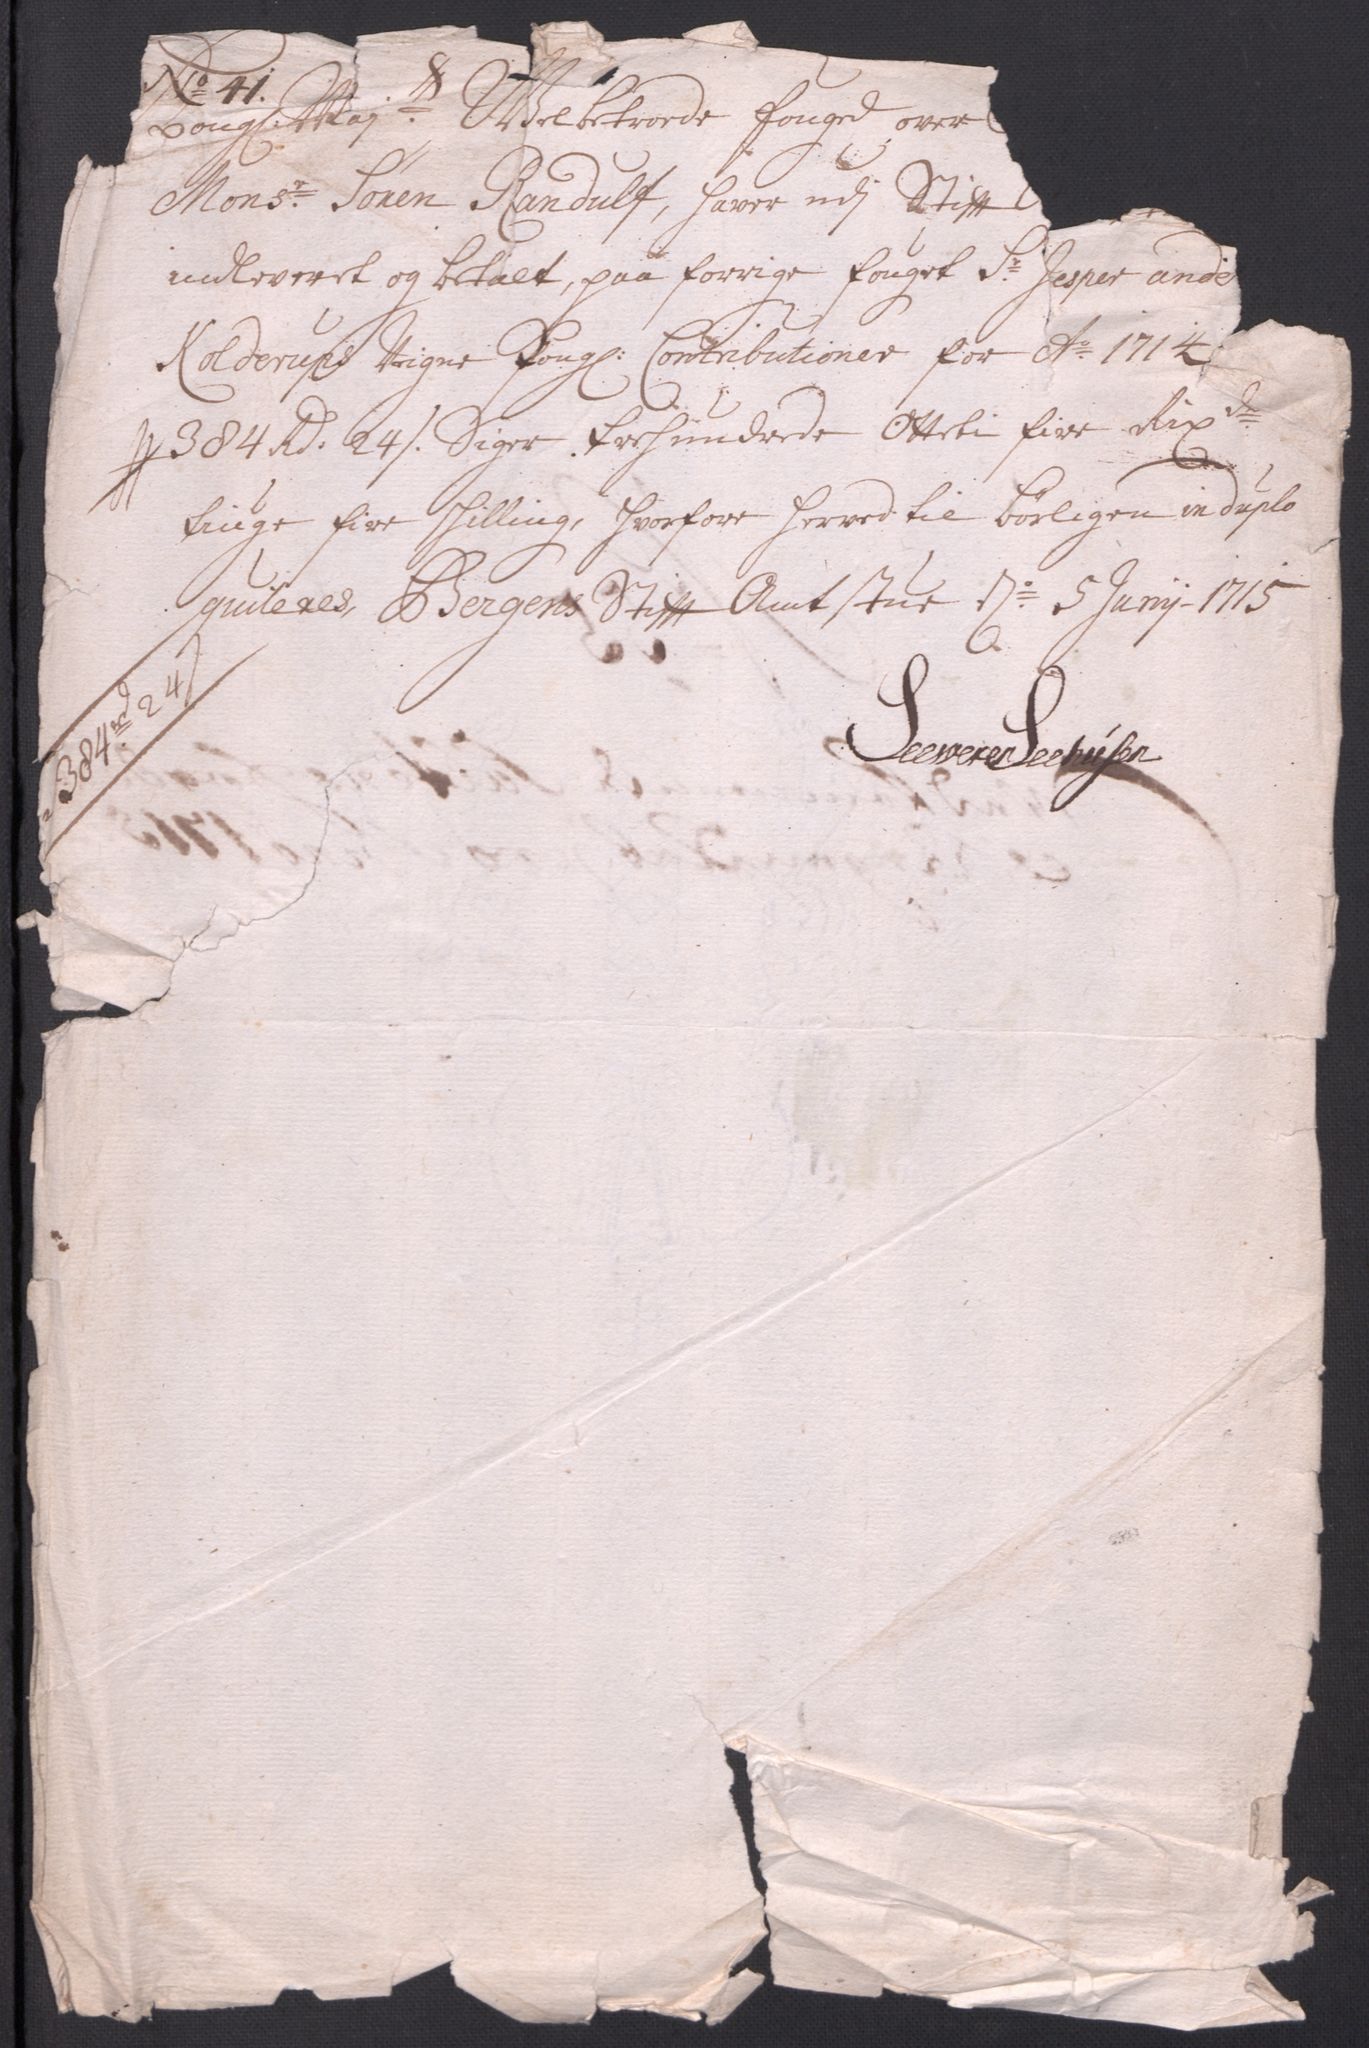 No 41.
Kongl: Maj:ts Welbetroede fouged over
Monsr: Sören Randulf, haver udj Stifft
indleveret og betalt, paa forrige fouget Sr: Jesper ande
Kolderups vegne Kongl: Contributioner for Ao 1714
# 384 Rd: 24 s. Siger trehundrede Otteti fire Rixdr:
tiuge fire schilling, hvorfore herved til börligen in duplo
quiteres, Bergens Stifft Amt stue d: 5 Junij 1715
Seeweren Seehusen
384rd 24